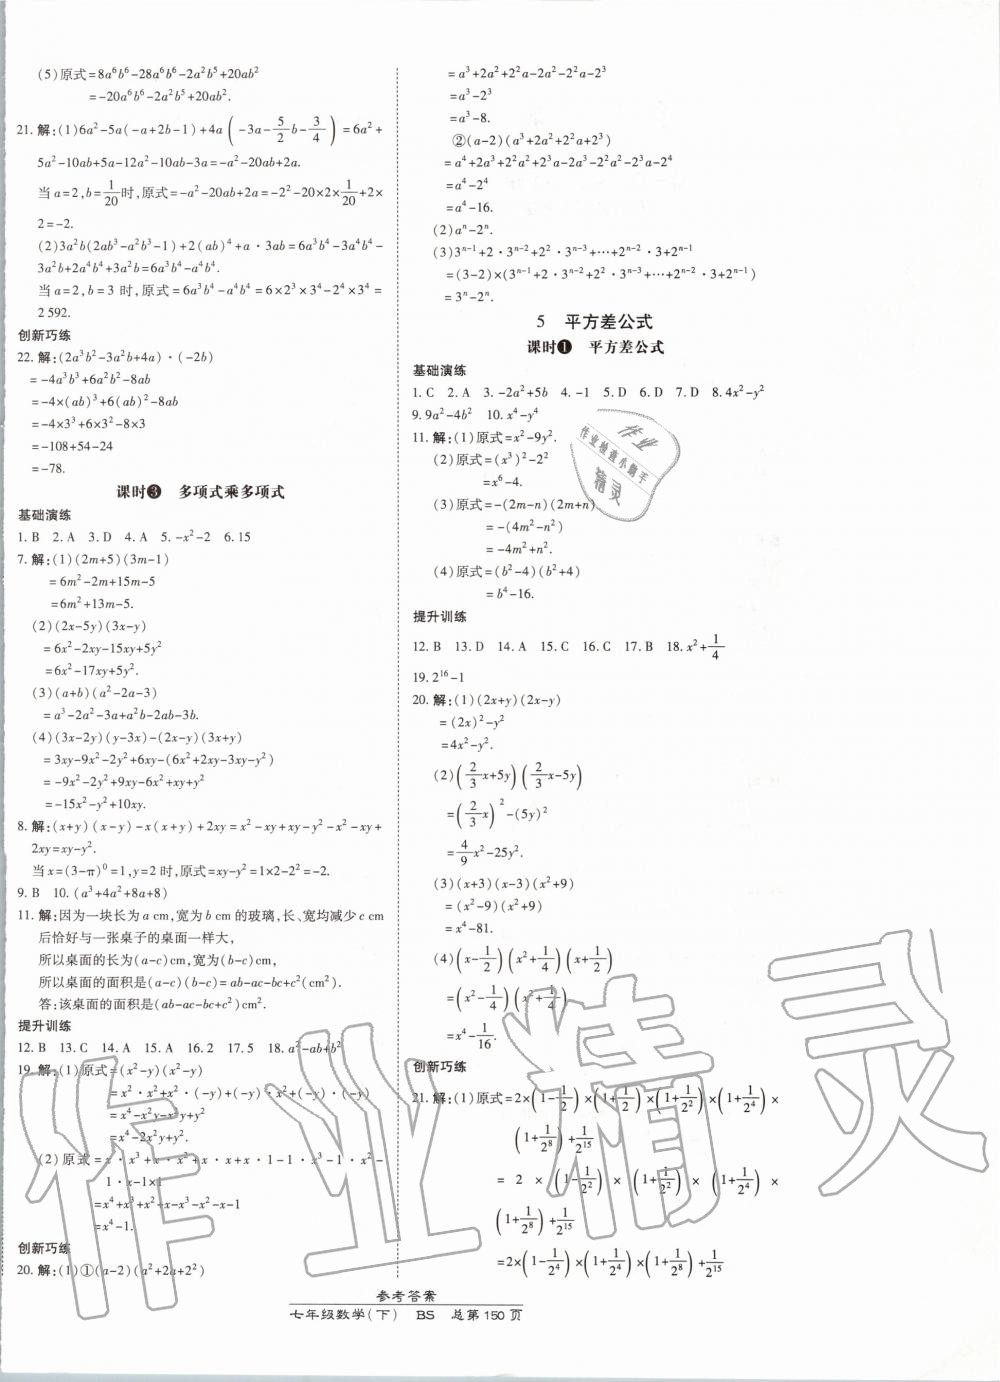 (5)原式=8a⁶b⁶-28a⁶b⁶-2a²b⁵+20ab²
=-20a⁶b⁶-2a²b⁵+20ab².
21.解:(1)6a²-5a(-a+2b-1)+4a(-3a-5/2b-3/4)=6a²+
5a²-10ab+5a-12a²-10ab-3a=-a²-20ab+2a.
当a=2,b=1/20时,原式=-a²-20ab+2a=-2²-20×2×1/20+2×
2=-2.
(2)3a²b(2ab³-a²b³-1)+2(ab)⁴+a·3ab=6a³b⁴-3a⁴b⁴-
3a²b+2a⁴b⁴+3a²b=6a³b⁴-a⁴b⁴.
当a=2,b=3时,原式=6a³b⁴-a⁴b⁴=6×2³×3⁴-2⁴×3⁴=
2 592.
创新巧练
22.解:(2a³b²-3a²b+4a)·(-2b)
=-4a³b³+6a²b²-8ab
=-4×(ab)³+6(ab)²-8ab
=-4×3³+6×3²-8×3
=-108+54-24
=-78.
课时❸ 多项式乘多项式
基础演练
1.B 2.A 3.D 4.A 5.-x²-2 6.15
7.解:(1)(2m+5)(3m-1)
=6m²-2m+15m-5
=6m²+13m-5.
(2)(2x-5y)(3x-y)
=6x²-2xy-15xy+5y²
=6x²-17xy+5y².
(3)(a+b)(a²-2a-3)
=a³-2a²-3a+a²b-2ab-3b.
(4)(3x-2y)(y-3x)-(2x-y)(3x+y)
=3xy-9x²-2y²+6xy-(6x²+2xy-3xy-y²)
=-9x²-2y²+9xy-6x²+xy+y²
=-15x²-y²+10xy.
8.解:(x+y)(x-y)-x(x+y)+2xy=x²-xy+xy-y²-x²-xy+
2xy=xy-y².
当x=(3-π)⁰=1,y=2时,原式=xy-y²=1×2-2²=-2.
9.B 10.(a³+4a²+8a+8)
11.解:因为一块长为a cm,宽为b cm的玻璃,长、宽均减少c cm
后恰好与一张桌子的桌面一样大,
所以桌面的长为(a-c)cm,宽为(b-c)cm,
所以桌面的面积是(a-c)(b-c)=ab-ac-bc+c²(cm²).
答:该桌面的面积是(ab-ac-bc+c²)cm².
提升训练
12.B 13.C 14.A 15.A 16.2 17.5 18.a²-ab+b²
19.解:(1)原式=(x²-y)(x²-y)
=x²·x²+x²·(-y)+(-y)·x²+(-y)·(-y)
=x⁴-x²y-x²y+y²
=x⁴-2x²y+y².
(2)原式=x·x³+x·x²+x·x+x·1-1·x³-1·x²-
1·x-1×1
=x⁴+x³+x²+x-x³-x²-x-1
=x⁴-1.
创新巧练
20.解:(1)①(a-2)(a²+2a+2²)
=a³+2a²+2²a-2a²-2²a-2³
=a³-2³
=a³-8.
②(a-2)(a³+2a²+2²a+2³)
=a⁴+2a³+2²a²+2³a-2a³-2²a²-2³a-2⁴
=a⁴-2⁴
=a⁴-16.
(2)aⁿ-2ⁿ.
(3)3ⁿ⁻¹+2·3ⁿ⁻²+2²·3ⁿ⁻³+…+2ⁿ⁻²·3+2ⁿ⁻¹
=(3-2)×(3ⁿ⁻¹+2·3ⁿ⁻²+2²·3ⁿ⁻³+…+2ⁿ⁻²·3+2ⁿ⁻¹)
=3ⁿ-2ⁿ.
5 平方差公式
课时❶ 平方差公式
基础演练
1.C 2.A 3.-2a²+5b 4.-1 5.D 6.D 7.D 8.4x²-y²
9.9a²-4b² 10.x⁴-y⁴
11.解:(1)原式=x²-9y².
(2)原式=(x³)²-2²
=x⁶-4.
(3)原式=-(2m-n)(2m+n)
=-(4m²-n²)
=-4m²+n².
(4)原式=(b²-4)(b²+4)
=b⁴-16.
提升训练
12.B 13.D 14.A 15.C 16.C 17.B 18.x²+1/4
19.2¹⁶-1
20.解:(1)(2x+y)(2x-y)
=(2x)²-y²
=4x²-y².
(2)(2/3x+5y)(2/3x-5y)
=(2/3x)²-(5y)²
=4/9x²-25y².
(3)(x+3)(x-3)(x²+9)
=(x²-9)(x²+9)
=x⁴-81.
(4)(x-1/2)(x²+1/4)(x+1/2)
=(x²-1/4)(x²+1/4)
=x⁴-1/16.
创新巧练
21.解:(1)原式=2×(1-1/2)×(1+1/2)×(1+1/2²)×(1+1/2⁴)×
(1+1/2⁸)+1/2¹⁵
=2×(1-1/2²)×(1+1/2²)×(1+1/2⁴)×
(1+1/2⁸)+1/2¹⁵
=2×(1-1/2⁴)×(1+1/2⁴)×(1+1/2⁸)+1/2¹⁵
参考答案
七年级数学(下) BS 总第150页
作业
作业检查小助手
精灵
作业精灵